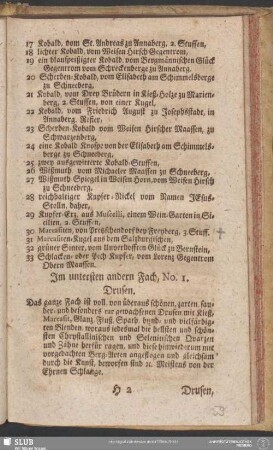 17 Kobald, vom St. Andreas zu Annaberg, 2. Stuffen,
18 lichter Kobald, vom Weisen Hirsch Gegentrom,
19 ein blauspeißigter Kobald, vom Bergmännischen Glück
Gegentrom vom Schreckenberge zu Annaberg.
20 Scherben-Kobald, vom Elisabeth am Schimmelsberge
zu Schneeberg,
21 Kobald, vom Drey Brüdern in Kieß-Holze zu Marien-
berg, 2. Stuffen, von einer Kugel,
22 Kobald, vom Friedrich August zu Josephstadt, in
Annaberg. Refier,
23 Scherben-Kobald vom Weisen Hirscher Maassen, zu
Schwarzenberg,
24 eine Kobald Knospe von der Elisabeth am Schimmels-
berge zu Schneeberg,
25 zwey ausgewitterte Kobald-Stuffen,
26 Wißmuth, vom Michaeler Maassen zu Schneeberg,
27 Wißmuth Spiegel in Weisen Horn, vom Weisen Hirsch
zu Schneeberg,
28 reichhaltiger Kupfer-Nickel vom Namen JEsus-
Stolln, daher,
29 Kupfer-Erz, aus einem Wein-Garten in Si-
cilien, 2. Stuffen,
30 Marcasiten, von Pretschendorf bey Freyberg, 3 Stuff.
31 Marcasiten-Kugel aus dem Salzburgischen,
32 grüner Sinter, vom Unverhofften Glück zu Bernstein,
33 Schlacken- oder Pech Kupfer, vom Lorenz Gegentrom
Obern Maassen.
Im untersten andern Fach, No. 1.
Drusen.
Das ganze Fach ist voll, von überaus schönen, zarten, sau-
ber- und besonders rar gewachsenen Drusen mit Kieß,
Marcasit, Glanz, Fluß, Spath, und vielfärbig-
ten Blenden, woraus iedesmal die hellsten und schön-
sten Chrystallinischen und Selenitischen Quarzen
und Zähne herfür ragen, und diese hinwiederum mit
vorgedachten Berg-Arten angeflogen und gleichsam
durch die Kunst, beworfen sind 21. Meistens von der
Ehrnen Schlange.
H 2 Drusen,
53
SLUB